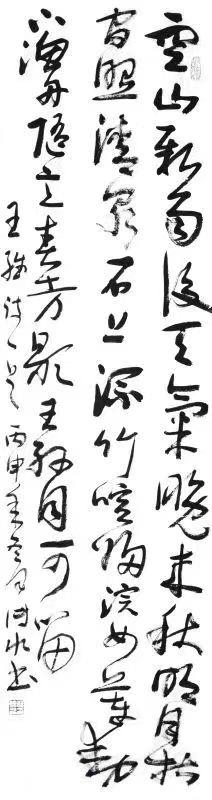 空山新雨後天氣晚来秋明月松
間照清泉石上流竹喧歸浣女蓮動
下漁舟隨意春芳歇王孫自可留
王維詩一首丙申年冬月水书